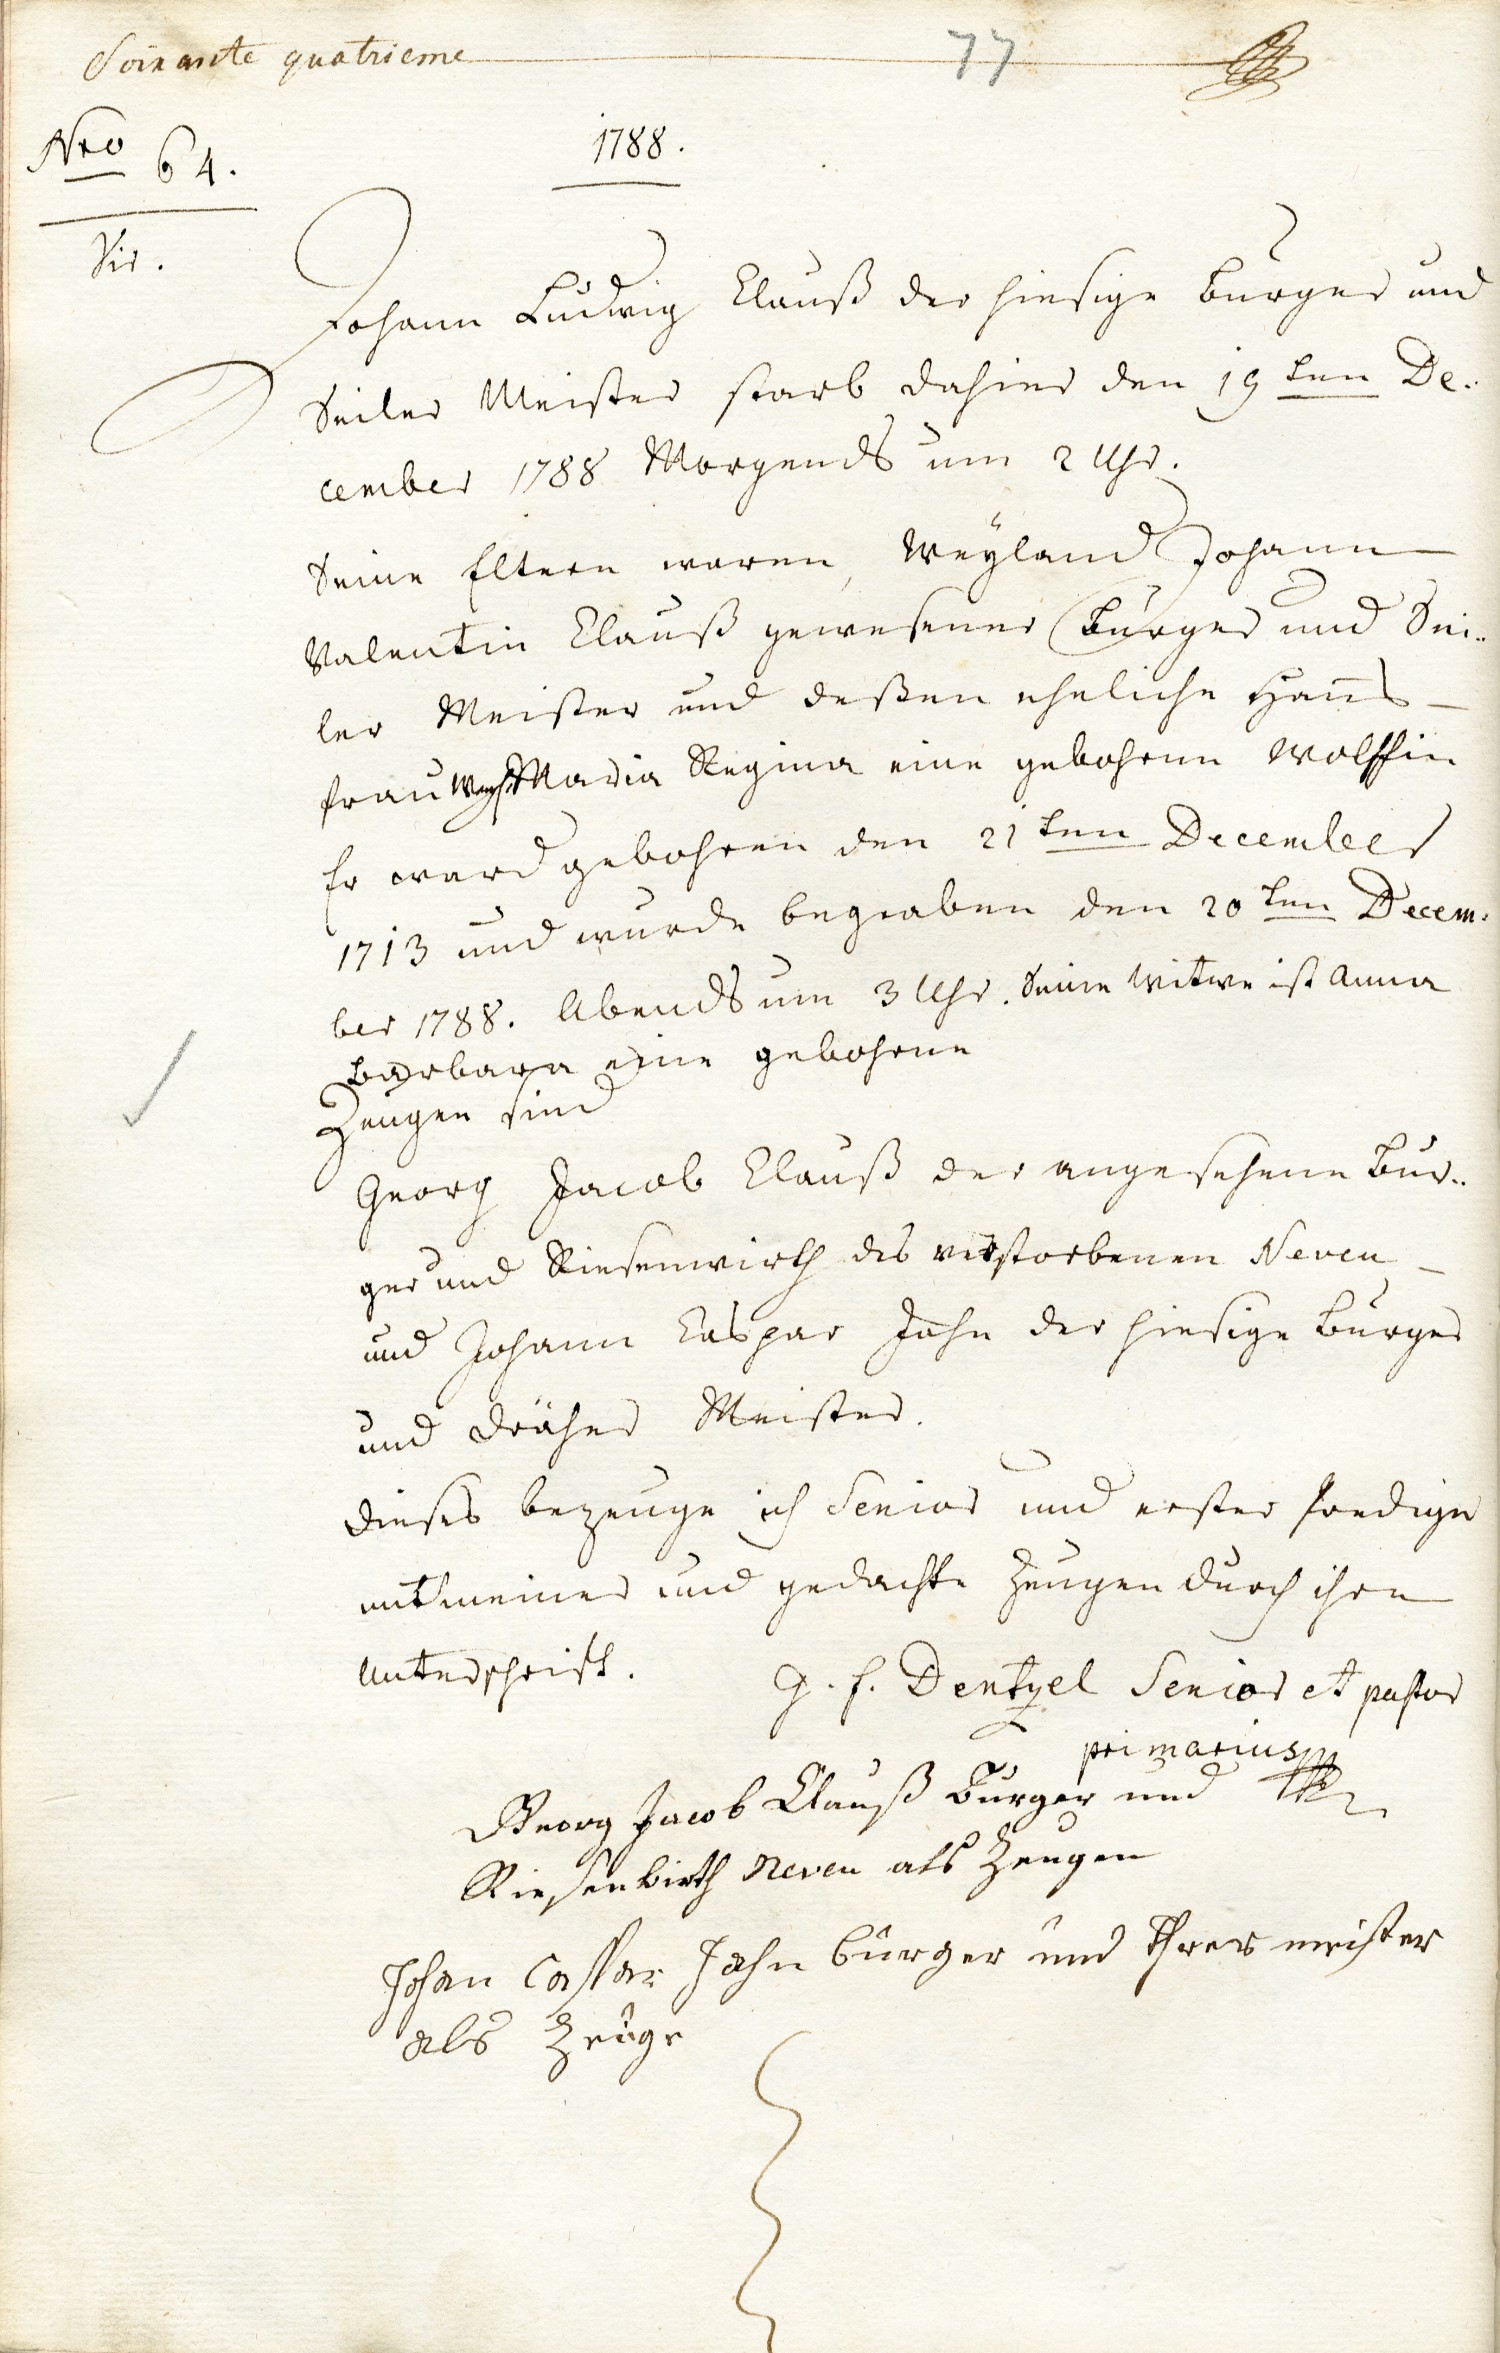 Soixante quatrieme
77
Nro 64.
1788.
Vir.
Johann Ludwig Clauß der hiesige Burger und
Seiler Meister starb dahier den 19ten De..
cember 1788 Morgends um 2 Uhr.
Seine Eltern waren, Weyland Johann
Valentin Clauß gewesener Burger und Sei..
ler Meister und deßen eheliche Haus
frau Maria Regina eine gebohrne Wolffin
Er ward gebohren den 21ten December
1713 und wurde begraben den 20ten Decem.
ber 1788. Abends um 3 Uhr. Seine Witwe ist Anna
Barbara eine gebohrne
Zeugen sind
Georg Jacob Clauß der angesehene Bur..
ger und Riesenwirth des verstorbenen Neveu
und Johann Caspar Jahn der hiesige Burger
und Dräher Meister.
dieses bezeuge ich Senior und erster Prediger
mit meiner und gedachte Zeugen durch ihre
Unterschrift.
G. F. Dentzel Senior et pastor
primarius
Georg Jacob Clauß Burger und
Riesenwirth Neveu als Zeugen
Johan Casspar Jahn bürger und Threr meister
als Zeüge